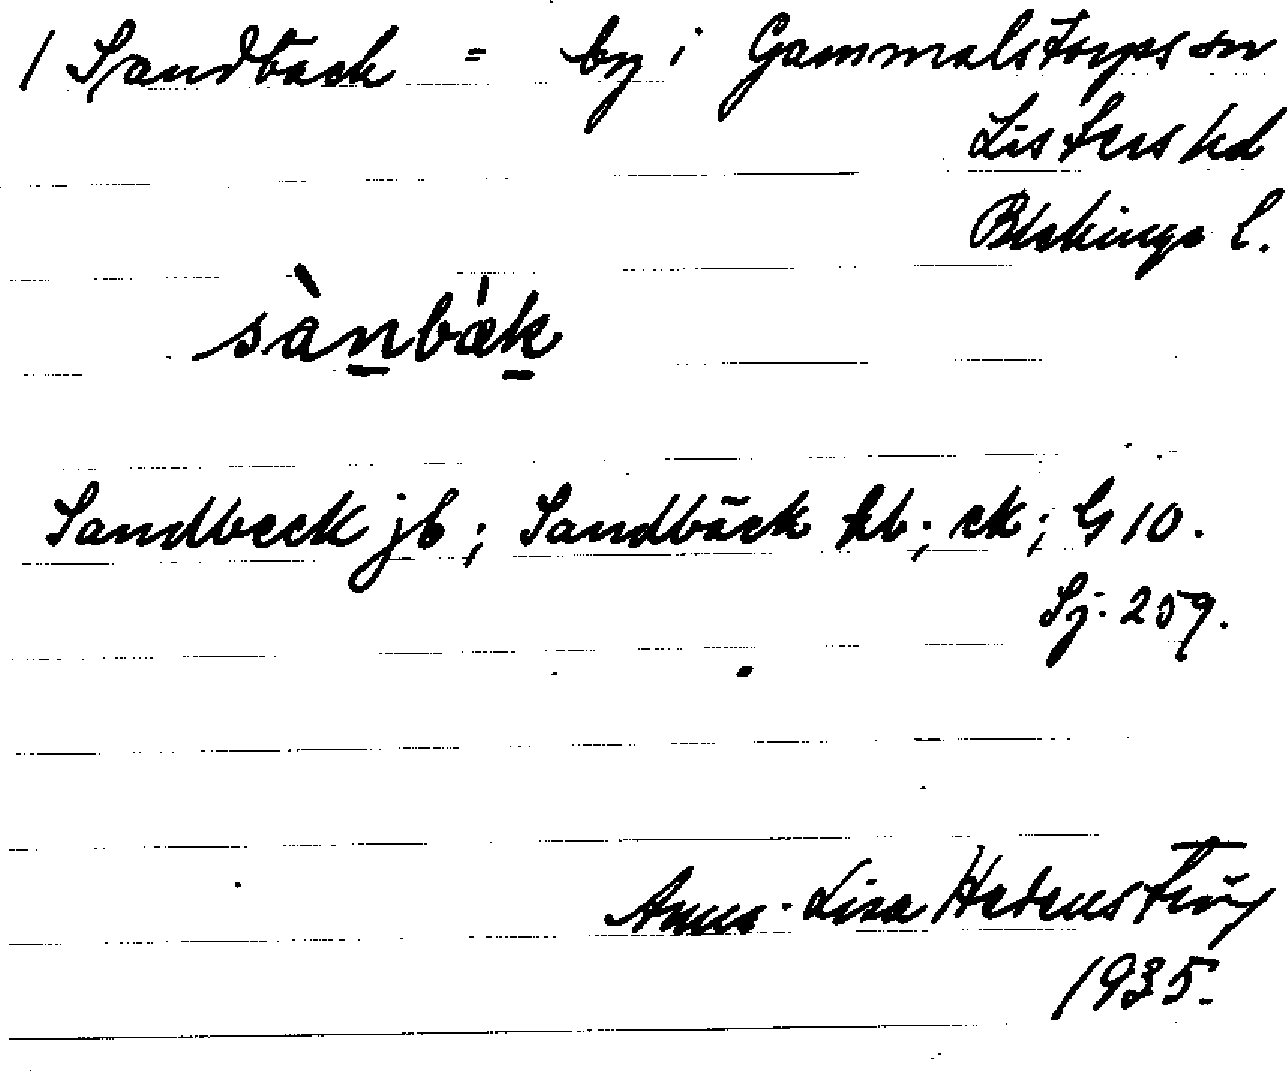 / Sandbäck = by i Gammalstorps sn
Listers hd
Blekinge l.
sànbæ̍k
Sandbeck jb; Sandbäck kb; ek; G 10.
Sj. 259.
Anna-Lisa Hedenstierna
1935.